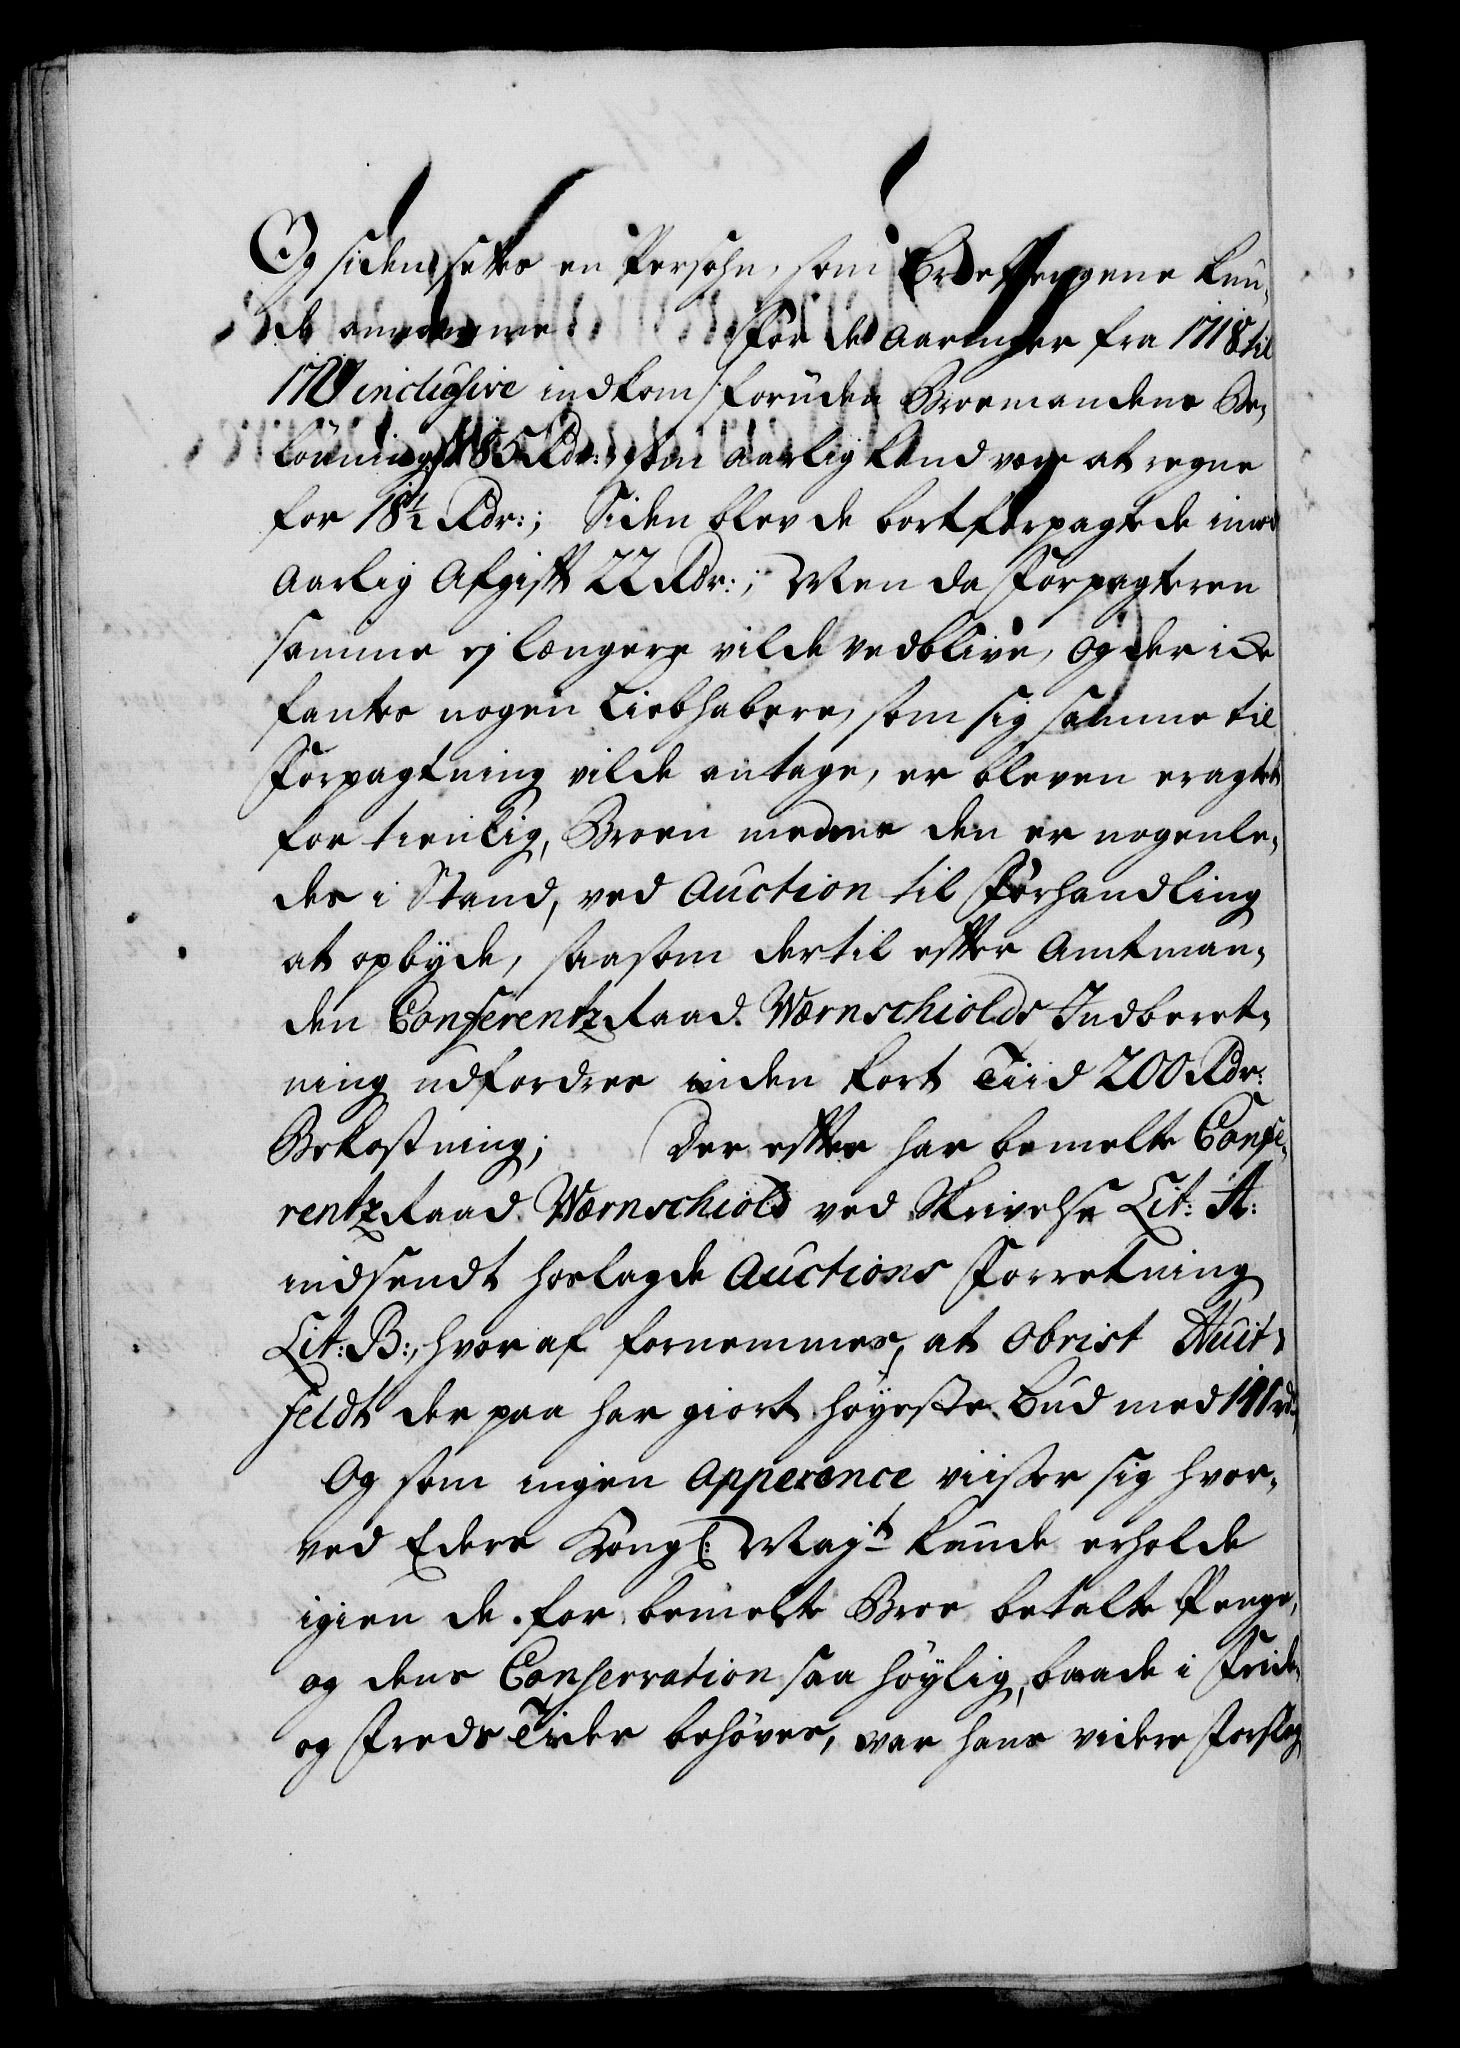 Og siden settes en Persohn, som Broe Pengene kun-
de annamme. For de Aaringer fra 1718 til
inclusive indkom foruden Broemandens Be-
lønning 185 Rdr:, som aarlig kand være at regne
for 18½ Rdr:; Siden blev de bortforpagtede imod
Aarlig Afgift 22 Rdr:; Men da Forpagteren
samme ej længere vilde vedblive, og der icke
fantes nogen Liebhabere, som sig samme til
Forpagtning vilde antage, er bleven eragtet
for tienlig, Broen medens den er nogenle-
des i Stand, ved Auction til Forhandling
at opbyde, saasom dertil efter Amtman-
den Conferentz Raad Wærnschiolds Indberet-
ning udfordres inden kort Tiid 200 Rdr:
Bekostning; Der efter har bemelte Confe-
rentz Raad Wærnschiold ved Skrivelse Lit: A:
indsendt hoslagde Auctions Forretning
Lit: B:, hvor af fornemmes, at Obrist Huit-
feldt der paa har giort høyeste Bud med
Og som ingen Apperence viiser sig hvor-
ved Eders Kongl: Maj:ts kunde erholde
igien de for bemelte Broe betalte Penge,
og dens Conservation saa høylig, baade i Feide-
og Freds Tider behøves, var hans videre Forslag